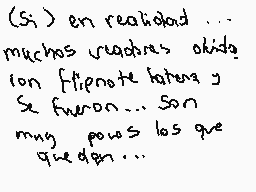 (Si) en realidad ...
muchos creadores olvida
ron flipnote hatena y
se fueron... son
muy pocos los que
quedan...